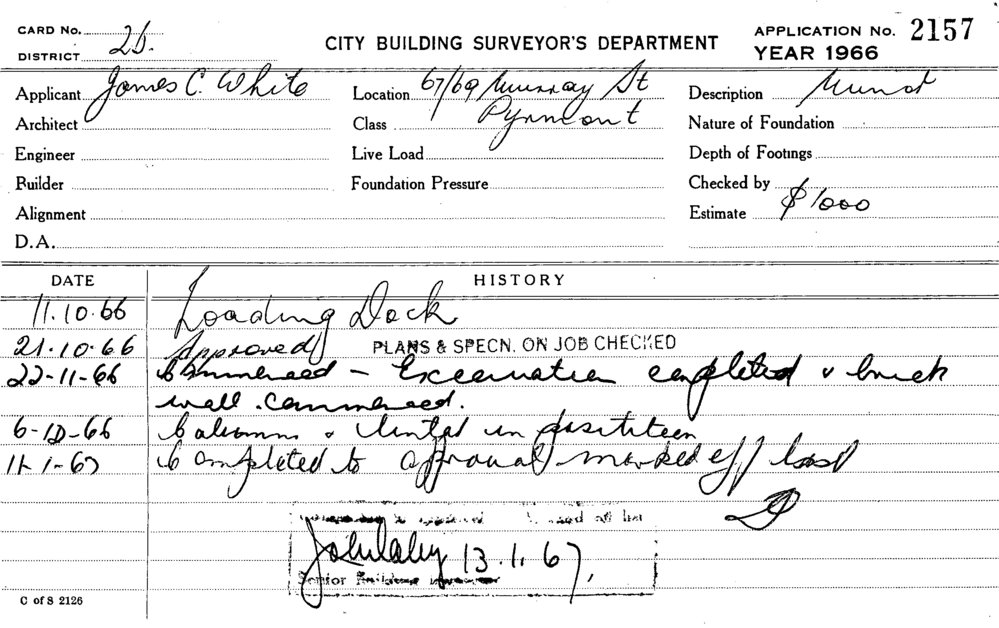 CARD No. 2b. CITY BUILDING SURVEYOR'S DEPARTMENT APPLICATION No. 2157
DISTRICT YEAR 1966
Applicant James C. White Location 67/69 Murray St Description
Architect Class Pyrmont Nature of Foundation
Engineer Live Load Depth of Footings
Builder Foundation Pressure Checked by
Alignment Estimate $1000
D.A.
DATE HISTORY
11.10.66 Loading Dock
21.10.66 Approved PLANS & SPECN. ON JOB CHECKED
22-11-66 Commenced - Excavation completed & brick
wall commenced.
6-12-66 Columns & lintel in position
11-1-67 Completed to approval marked off list
off list
13.1.67.
Senior Building
C of S 2126